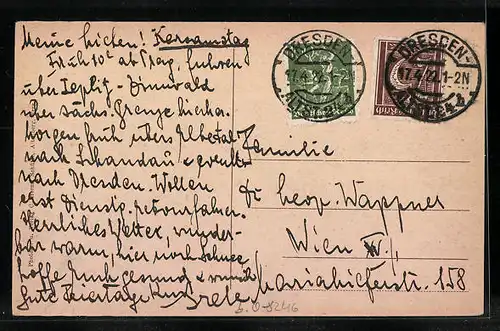 Meine lieben! Karsamstag
Früh 10h ab Prag, fuhren
über Teplitz - Zinnwald
über sächs. Grenze hierher
morgen früh übers Elbetal
nach Schandau & eventuell
nach Dresden. Wollen
erst Dienstg. retourfahren.
Herrliches Wetter, wunder-
bar warm, hier noch Schnee
hoffe Euch gesund &
gute Feiertage Grete
DRESDEN-
17.4.22. 1-2N
ALTST. 24
DRESDEN-
17.4.22. 1-2N
ALTST. 24
Familie
Dr Leop. Wappner
Wien XV,
Mariahilferstr. 158